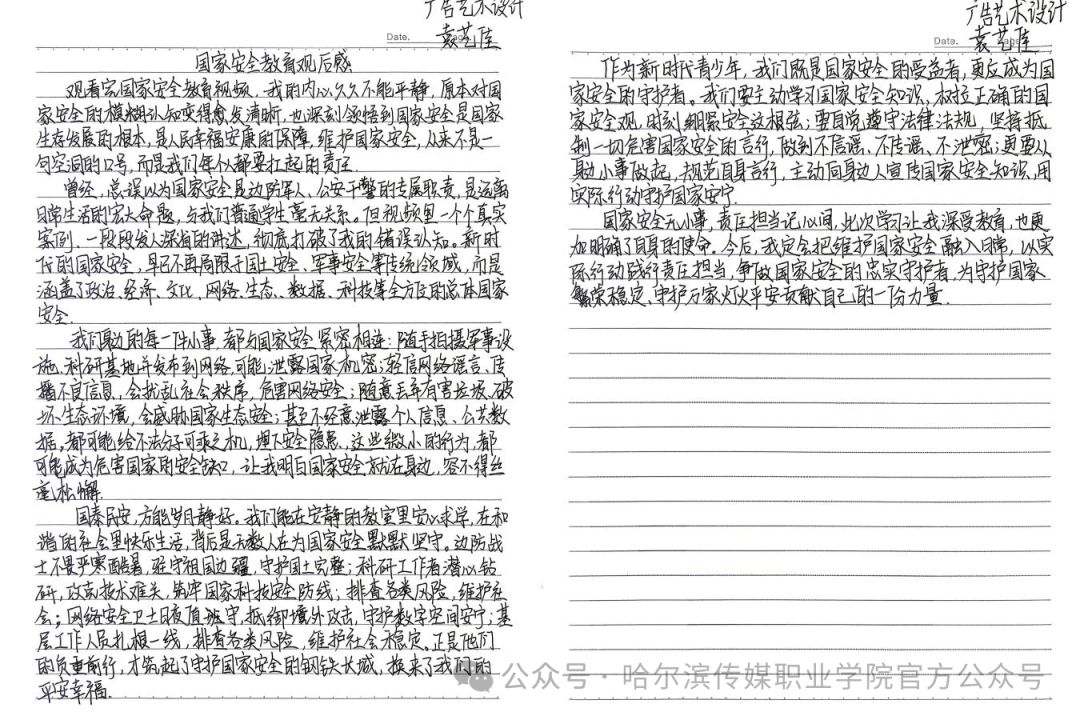 广告艺术设计
Date.
袁艺佳
国家安全教育观后感
观看完国家安全教育视频，我的内心久久不能平静，原本对国
家安全的模糊认知变得愈发清晰，也深刻领悟到国家安全是国家
生存发展的根本，是人民幸福安康的保障，维护国家安全，从来不是一
句空洞的口号，而是我们每个人都要扛起的责任
曾经，总误以为国家安全是边防军人、公安干警的专属职责，是远离
日常生活的宏大命题，与我们普通学生毫无关系。但视频里一个个真实
案例，一段段发人深省的讲述，彻底打破了我的错误认知。新时
代的国家安全，早已不再局限于国土安全、军事安全等传统领域，而是
涵盖了政治、经济、文化、网络、生态、数据、科技等全方位的总体国家
安全.
我们身边的每一件小事，都与国家安全紧密相连：随手拍摄军事设
施、科研基地并发布到网络，可能泄露国家机密；轻信网络谣言、传
播不良信息，会扰乱社会秩序，危害网络安全；随意丢弃有害垃圾、破
坏生态环境，会威胁国家生态安全；甚至不经意泄露个人信息、公共数
据，都可能给不法分子可乘之机，埋下安全隐患，这些微小的行为，都
可能成为危害国家的安全缺口，让我明白国家安全就在身边，容不得丝
毫松懈.
国泰民安，方能岁月静好。我们能在安静的教室里安心求学，在和
谐的社会里快乐生活，背后是无数人在为国家安全默默坚守。边防战
士不畏严寒酷暑，驻守祖国边疆，守护国土完整；科研工作者潜心钻
研，攻克技术难关，筑牢国家科技安全防线；排查各类风险，维护社
会；网络安全卫士日夜值班守，抵御境外攻击，守护数字空间安宁；基
层工作人员扎根一线，排查各类风险，维护社会稳定。正是他们
的负重前行，才筑起了守护国家安全的钢铁长城，换来了我们的
平安幸福.
广告艺术设计
Date.
袁艺佳
作为新时代青少年，我们既是国家安全的受益者，更应成为国
家安全的守护者。我们要主动学习国家安全知识，树立正确的国
家安全观，时刻绷紧安全这根弦；要自觉遵守法律法规，坚持抵
制一切危害国家安全的言行，做到不信谣、不传谣、不泄密；更要从
身边小事做起，规范自身言行，主动向身边人宣传国家安全知识，用
实际行动守护国家安宁.
国家安全无小事，责任担当记心间，此次学习让我深受教育，也更
加明确了自身的使命。今后，我定会把维护国家安全融入日常，以实
际行动践行责任担当，争做国家安全的忠实守护者，为守护国家
繁荣稳定、守护万家灯火平安贡献自己的一份力量.
公众号·哈尔滨传媒职业学院官方公众号